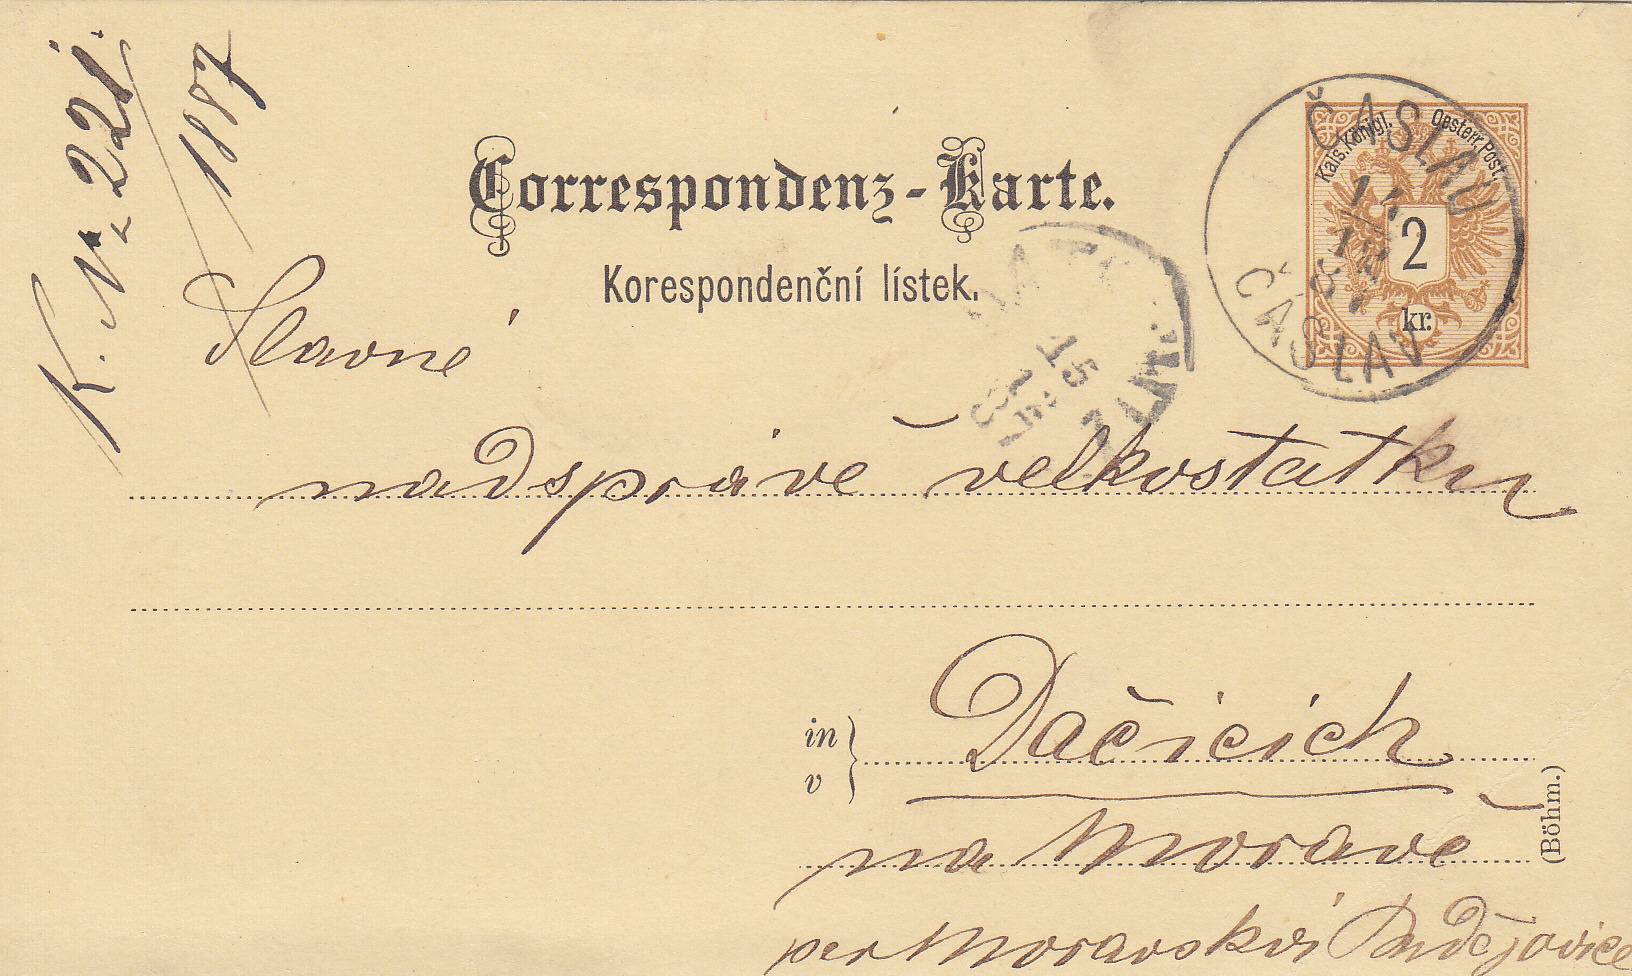 K. Nr. 221.
1887
Correspondenz-Karte.
Korespondenční lístek.
Kais. Königl. Oesterr. Post.
2
kr.
ČASLAU
14
12
87
ČÁSLAV
15
12
87
Slavné
nadsprávě velkostatku
in
v
Dačicích
na Moravě
per Moravské Budějovice
(Böhm.)